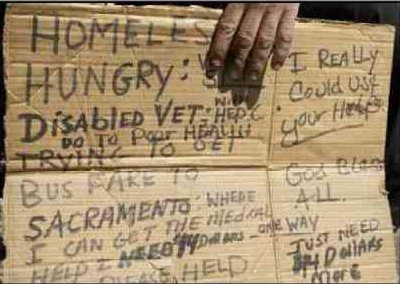 HOMELESS
HUNGRY:
DISABLED VET: W/ HEP C
DO TO POOR HEALTH
TRYING TO GET
BUS FARE TO
SACRAMENTO: WHERE
I CAN GET THE MEDICAL
HELP I NEED 44 DOLLARS - ONE WAY
PLEASE HELP
I REALLY
COULD USE
your Help
God BLESS
ALL.
JUST NEED
14 DOLLARS
MORE